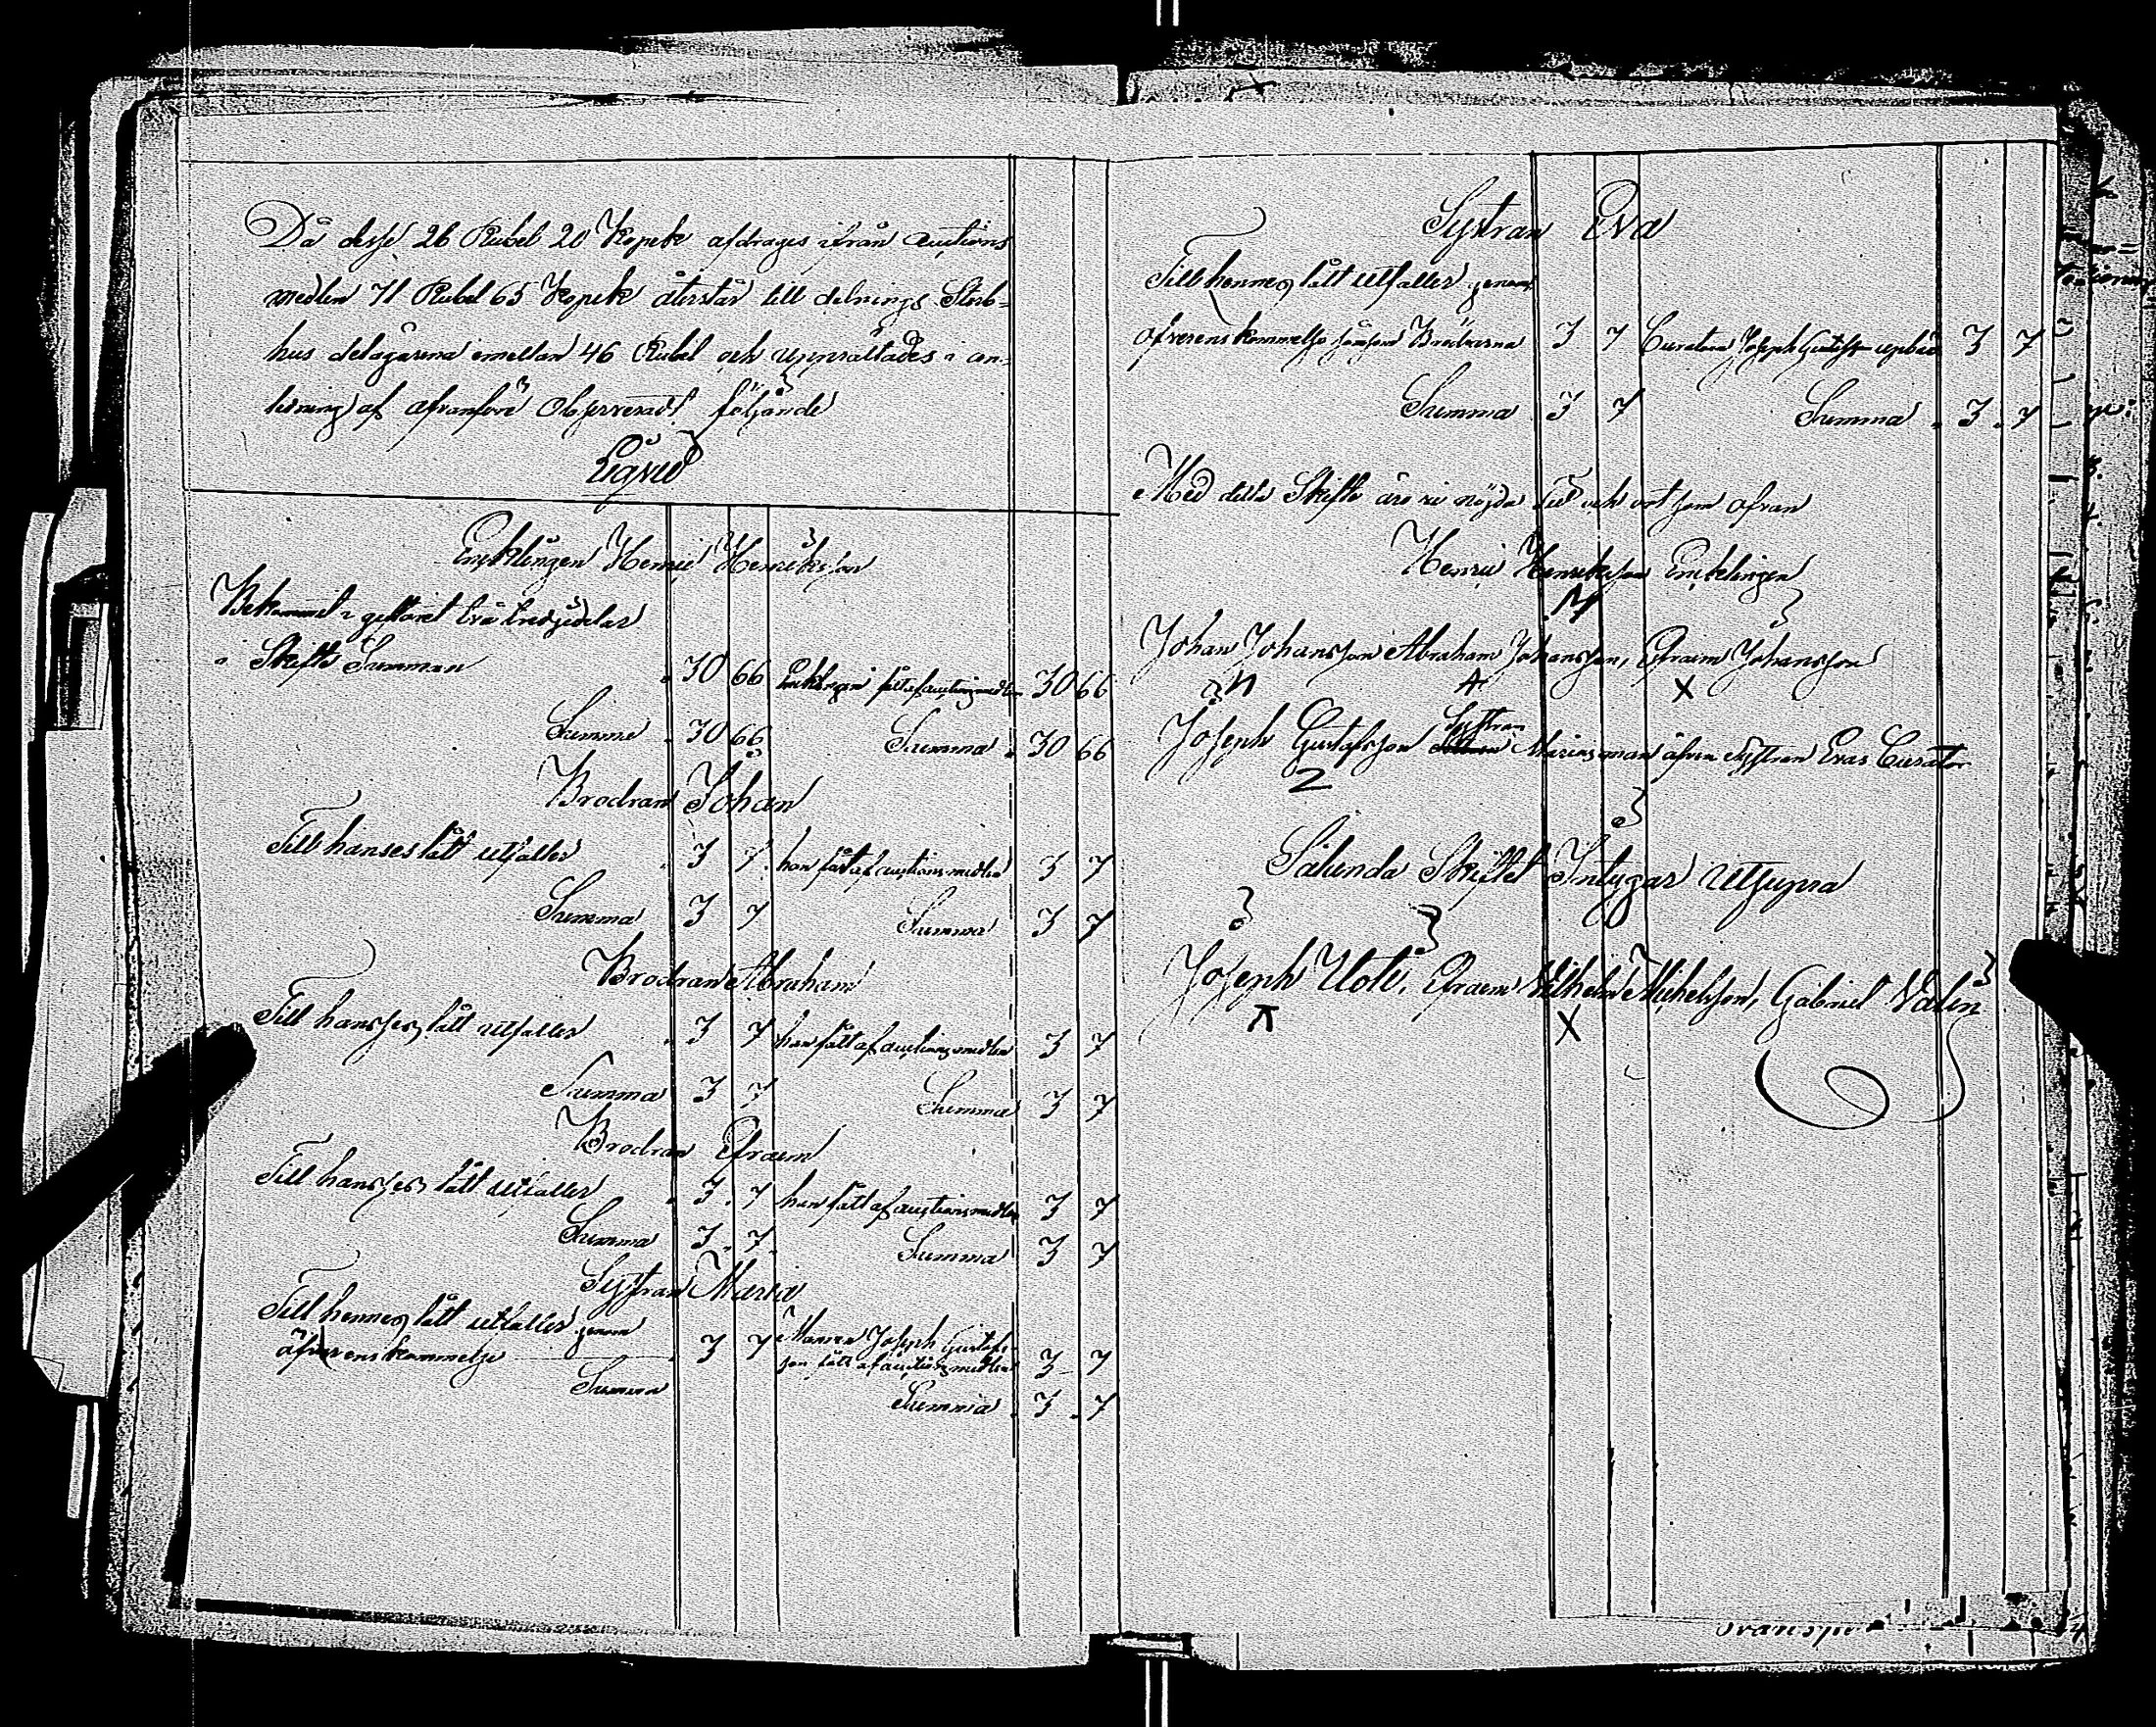 Då desse 26 Rubel 20 Kopek afdrages ifrån auctions
medlen 71 Rubel 65 Kopek återstår till delnings Sterb-
hus delägarena emellan 46 Rubel och upprättades i an-
ledning af ofvanföre Observeradt följande
Liqvid
Encklingen Henric Henriksson
Bekommet i giftorät två tredjedelar
i Skifts Summan " 30 66 Encklingen fått af auctionsmedlen 30 66
Summa " 30 66 Summa " 30 66
Brodran Johan
Till hanses lått utfaller " 3 7 han fått af auctionsmedlen 3 7
Summa 3 7 Summa 3 7
Brodran Abraham
Till hansses lått utfaller " 3 7 han fått af auctionsmedlen 3 7
Summa 3 7 Summa 3 7
Brodran Efraim
Till hansses lått utfaller " 3 " 7 han fått af auctionsmedlen 3 7
Summa 3 " 7 Summa 3 7
Systran Maria
Till hennes lått utfaller genom
öfverenskommelse " 3 7 Mannen Joseph Gustafs-
son fått af auctionsmedlen 3 7
Summa
Summa " 3 " 7
Systran Eva
Till hennes lått utfaller genom
öfverenskommelse såsom Brödrarna 3 7 Curatorn Joseph Gustafss. upbär 3 7
Summa 3 7 Summa " 3 " 7
Med detta Skifte äro vi nöjda Tid och ort som ofvan
Henric Henriksson Encklingen
Johan Johansson Abraham Johansson, Efraim Johansson
X
Joseph Gustafsson Systran Marias man äfven Systran Evas Curator
Sålunda Skiftet Intygar Utsupra
Joseph Uoti, Efraim Vilhelm Michelsson, Gabriel Valin
X
Transport